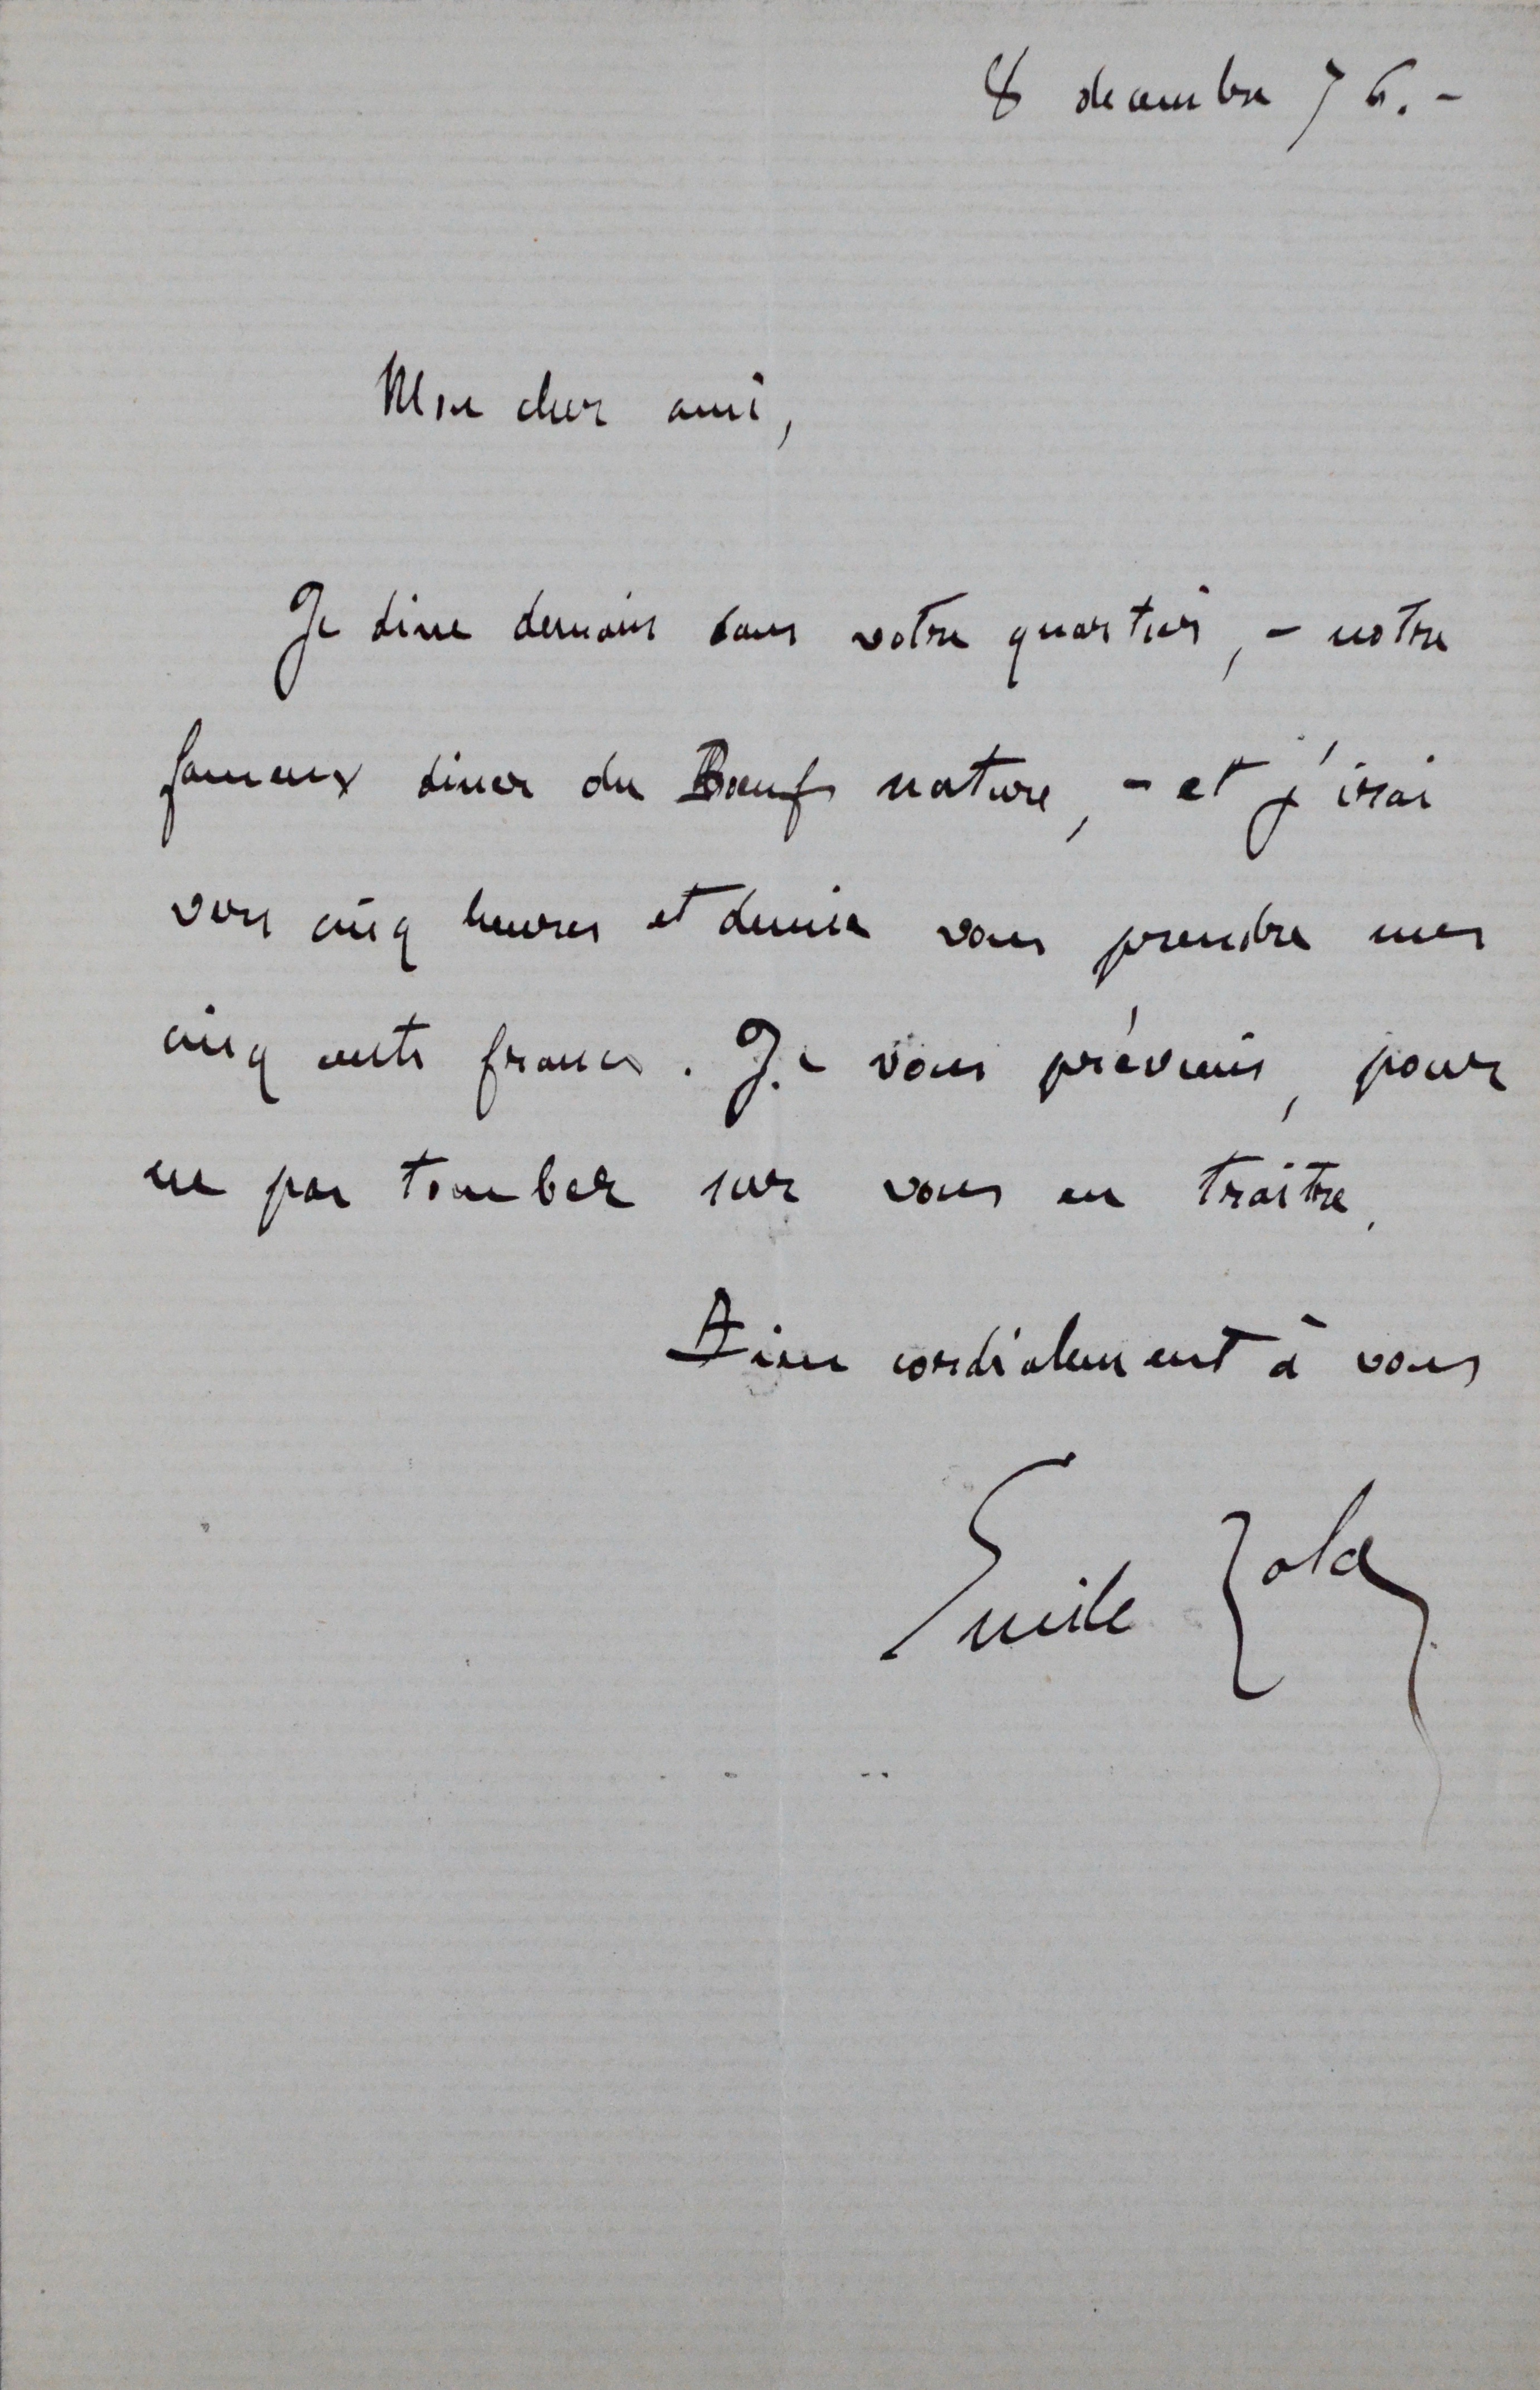 8 decembre 76. -
Mon cher ami,
Je dine demain dans votre quartier, - notre
fameux diner du Boeuf nature, - et j'irai
vers cinq heures et demie vous prendre mes
cinq cents francs. Je vous préviens, pour
ne pas tomber sur vous en traitre.
Bien cordialement à vous
Emile Zola